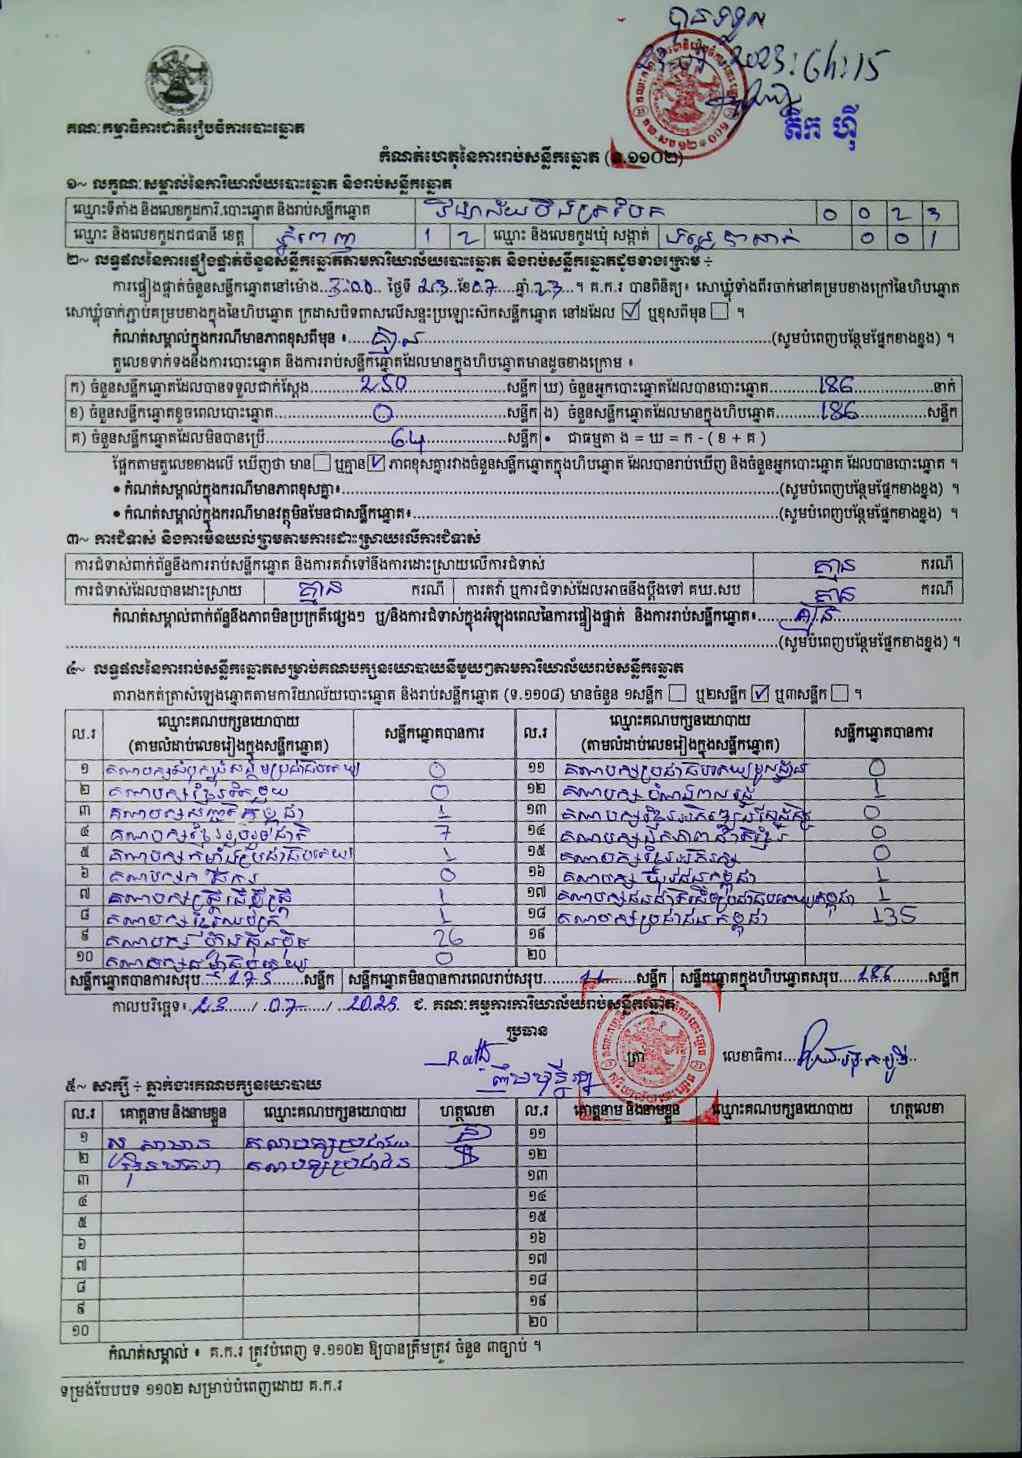 បានទទួល
2023: 6h: 15
តឹក ហ៊ី
គណៈកម្មាធិការជាតិរៀបចំការបោះឆ្នោត
កំណត់ហេតុនៃការរាប់សន្លឹកឆ្នោត (ទ.១១០២)
១~ លក្ខណៈសម្គាល់នៃការិយាល័យបោះឆ្នោត និងរាប់សន្លឹកឆ្នោត
ឈ្មោះទីតាំង និងលេខកូដការិ.បោះឆ្នោត និងរាប់សន្លឹកឆ្នោត 0 0 2 3
ឈ្មោះ និងលេខកូដរាជធានី ខេត្ត ភ្នំពេញ 1 2 ឈ្មោះ និងលេខកូដឃុំ សង្កាត់ 0 0 1
២~ លទ្ធផលនៃការផ្ទៀងផ្ទាត់ចំនួនសន្លឹកឆ្នោតតាមការិយាល័យបោះឆ្នោត និងរាប់សន្លឹកឆ្នោតដូចខាងក្រោម ÷
ការផ្ទៀងផ្ទាត់ចំនួនសន្លឹកឆ្នោតនៅម៉ោង..3:00.. ថ្ងៃទី 23 ខែ 07 ឆ្នាំ 23 ។ គ.ក.រ បានពិនិត្យ៖ សោឃ្លុំទាំងពីរចាក់នៅគម្របខាងក្រៅនៃហិបឆ្នោត
សោឃ្លុំចាក់ភ្ជាប់គម្របខាងក្នុងនៃហិបឆ្នោត ក្រដាសបិទពាសលើសន្ទះប្រឡោះសិកសន្លឹកឆ្នោត នៅដដែល ☑ ឬខុសពីមុន ☐ ។
កំណត់សម្គាល់ក្នុងករណីមានភាពខុសពីមុន ៖ គ្មាន (សូមបំពេញបន្ថែមផ្នែកខាងខ្នង) ។
តួលេខទាក់ទងនឹងការបោះឆ្នោត និងការរាប់សន្លឹកឆ្នោតដែលមានក្នុងហិបឆ្នោតមានដូចខាងក្រោម ៖
ក) ចំនួនសន្លឹកឆ្នោតដែលបានទទួលជាក់ស្តែង 250 សន្លឹក ឃ) ចំនួនអ្នកបោះឆ្នោតដែលបានបោះឆ្នោត 186 នាក់
ខ) ចំនួនសន្លឹកឆ្នោតខូចពេលបោះឆ្នោត 0 សន្លឹក ង) ចំនួនសន្លឹកឆ្នោតដែលមានក្នុងហិបឆ្នោត 186 សន្លឹក
គ) ចំនួនសន្លឹកឆ្នោតដែលមិនបានប្រើ 64 សន្លឹក • ជាធម្មតា ង = ឃ = ក - ( ខ + គ )
ផ្អែកតាមតួលេខខាងលើ ឃើញថា មាន ☐ ឬគ្មាន ☑ ភាពខុសគ្នារវាងចំនួនសន្លឹកឆ្នោតក្នុងហិបឆ្នោត ដែលបានរាប់ឃើញ និងចំនួនអ្នកបោះឆ្នោត ដែលបានបោះឆ្នោត ។
• កំណត់សម្គាល់ក្នុងករណីមានភាពខុសគ្នា៖ (សូមបំពេញបន្ថែមផ្នែកខាងខ្នង) ។
• កំណត់សម្គាល់ក្នុងករណីមានវត្ថុមិនមែនជាសន្លឹកឆ្នោត៖ (សូមបំពេញបន្ថែមផ្នែកខាងខ្នង) ។
៣~ ការជំទាស់ និងការមិនយល់ព្រមតាមការដោះស្រាយលើការជំទាស់
ការជំទាស់ពាក់ព័ន្ធនឹងការរាប់សន្លឹកឆ្នោត និងការតវ៉ាទៅនឹងការដោះស្រាយលើការជំទាស់ គ្មាន ករណី
ការជំទាស់ដែលបានដោះស្រាយ គ្មាន ករណី ការតវ៉ា ឬការជំទាស់ដែលអាចនឹងប្តឹងទៅ គឃ.សប គ្មាន ករណី
កំណត់សម្គាល់ពាក់ព័ន្ធនឹងភាពមិនប្រក្រតីផ្សេងៗ ឬ/និងការជំទាស់ក្នុងអំឡុងពេលនៃការផ្ទៀងផ្ទាត់ និងការរាប់សន្លឹកឆ្នោត៖ គ្មាន
(សូមបំពេញបន្ថែមផ្នែកខាងខ្នង) ។
៤~ លទ្ធផលនៃការរាប់សន្លឹកឆ្នោតសម្រាប់គណបក្សនយោបាយនីមួយៗតាមការិយាល័យរាប់សន្លឹកឆ្នោត
តារាងកត់ត្រាសំឡេងឆ្នោតតាមការិយាល័យបោះឆ្នោត និងរាប់សន្លឹកឆ្នោត (ទ.១១០៨) មានចំនួន ១សន្លឹក ☐ ឬ២សន្លឹក ☑ ឬ៣សន្លឹក ☐ ។
ល.រ ឈ្មោះគណបក្សនយោបាយ (តាមលំដាប់លេខរៀងក្នុងសន្លឹកឆ្នោត) សន្លឹកឆ្នោតបានការ ល.រ ឈ្មោះគណបក្សនយោបាយ (តាមលំដាប់លេខរៀងក្នុងសន្លឹកឆ្នោត) សន្លឹកឆ្នោតបានការ
១ គណបក្សសំបុកឃ្មុំសង្គមប្រជាធិបតេយ្យ 0 ១១ គណបក្សប្រជាធិបតេយ្យមូលដ្ឋាន 0
២ គណបក្សខ្មែរតែមួយ 0 ១២ គណបក្សបំណងពលរដ្ឋ 1
៣ គណបក្សសញ្ជាតិកម្ពុជា 1 ១៣ គណបក្សខ្មែរអភិវឌ្ឍន៍សេដ្ឋកិច្ច 0
៤ គណបក្សខ្មែររួបរួមជាតិ 7 ១៤ គណបក្សឯកភាពជាតិខ្មែរ 0
៥ គណបក្សកម្លាំងប្រជាធិបតេយ្យ 1 ១៥ គណបក្សខ្មែរអភិរក្ស 0
៦ គណបក្សកសិករ 0 ១៦ គណបក្សយុវជនកម្ពុជា 1
៧ គណបក្សស្ត្រីដើម្បីស្ត្រី 1 ១៧ គណបក្សជនជាតិដើមប្រជាធិបតេយ្យកម្ពុជា 1
៨ គណបក្សខ្មែរឈប់ក្រ 1 ១៨ គណបក្សប្រជាជនកម្ពុជា 135
៩ គណបក្សហ៊្វុនស៊ិនប៉ិច 26 ១៩
១០ គណបក្សធម្មាធិបតេយ្យ 0 ២០
សន្លឹកឆ្នោតបានការសរុប 175 សន្លឹក សន្លឹកឆ្នោតមិនបានការពេលរាប់សរុប 11 សន្លឹក សន្លឹកឆ្នោតក្នុងហិបឆ្នោតសរុប 186 សន្លឹក
កាលបរិច្ឆេទ៖ 23 / 07 / 2023 ជ. គណៈកម្មការការិយាល័យរាប់សន្លឹកឆ្នោត
ប្រធាន
ត្រា លេខាធិការ
៥~ សាក្សី ÷ ភ្នាក់ងារគណបក្សនយោបាយ
ល.រ គោត្តនាម និងនាមខ្លួន ឈ្មោះគណបក្សនយោបាយ ហត្ថលេខា ល.រ គោត្តនាម និងនាមខ្លួន ឈ្មោះគណបក្សនយោបាយ ហត្ថលេខា
១ គណបក្សប្រជាជន ១១
២ គណបក្សប្រជាជន ១២
៣ ១៣
៤ ១៤
៥ ១៥
៦ ១៦
៧ ១៧
៨ ១៨
៩ ១៩
១០ ២០
កំណត់សម្គាល់ ៖ គ.ក.រ ត្រូវបំពេញ ទ.១១០២ ឱ្យបានត្រឹមត្រូវ ចំនួន ៣ច្បាប់ ។
ទម្រង់បែបបទ ១១០២ សម្រាប់បំពេញដោយ គ.ក.រ